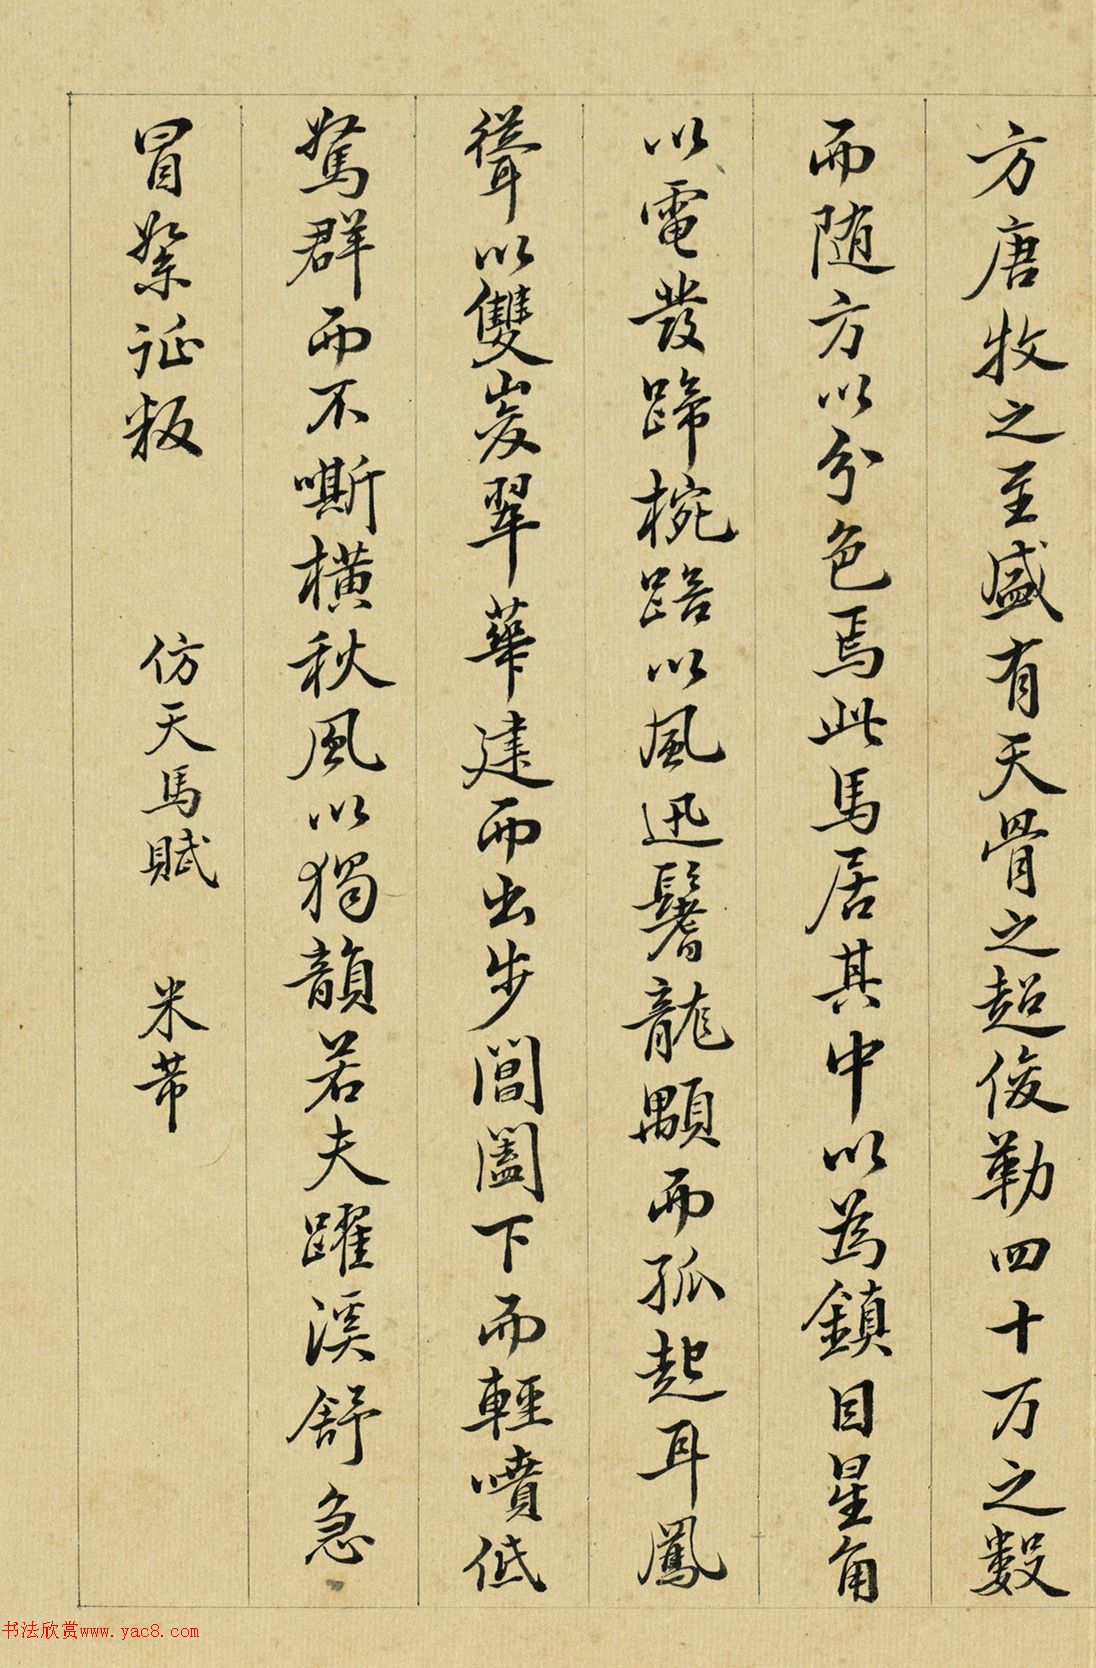 方唐牧之至盛有天骨之超俊勒四十万之数
而随方以分色焉此馬居其中以為鎮目星角
以電發蹄椀踣以風迅鬐龍顒而孤起耳鳳
聳以雙峻翠華建而出步閶闔下而輕噴低
駑群而不嘶横秋風以獨韻若夫躍溪舒急
冒絮征叛
仿天馬賦 米芾
书法欣赏www.yac8.com